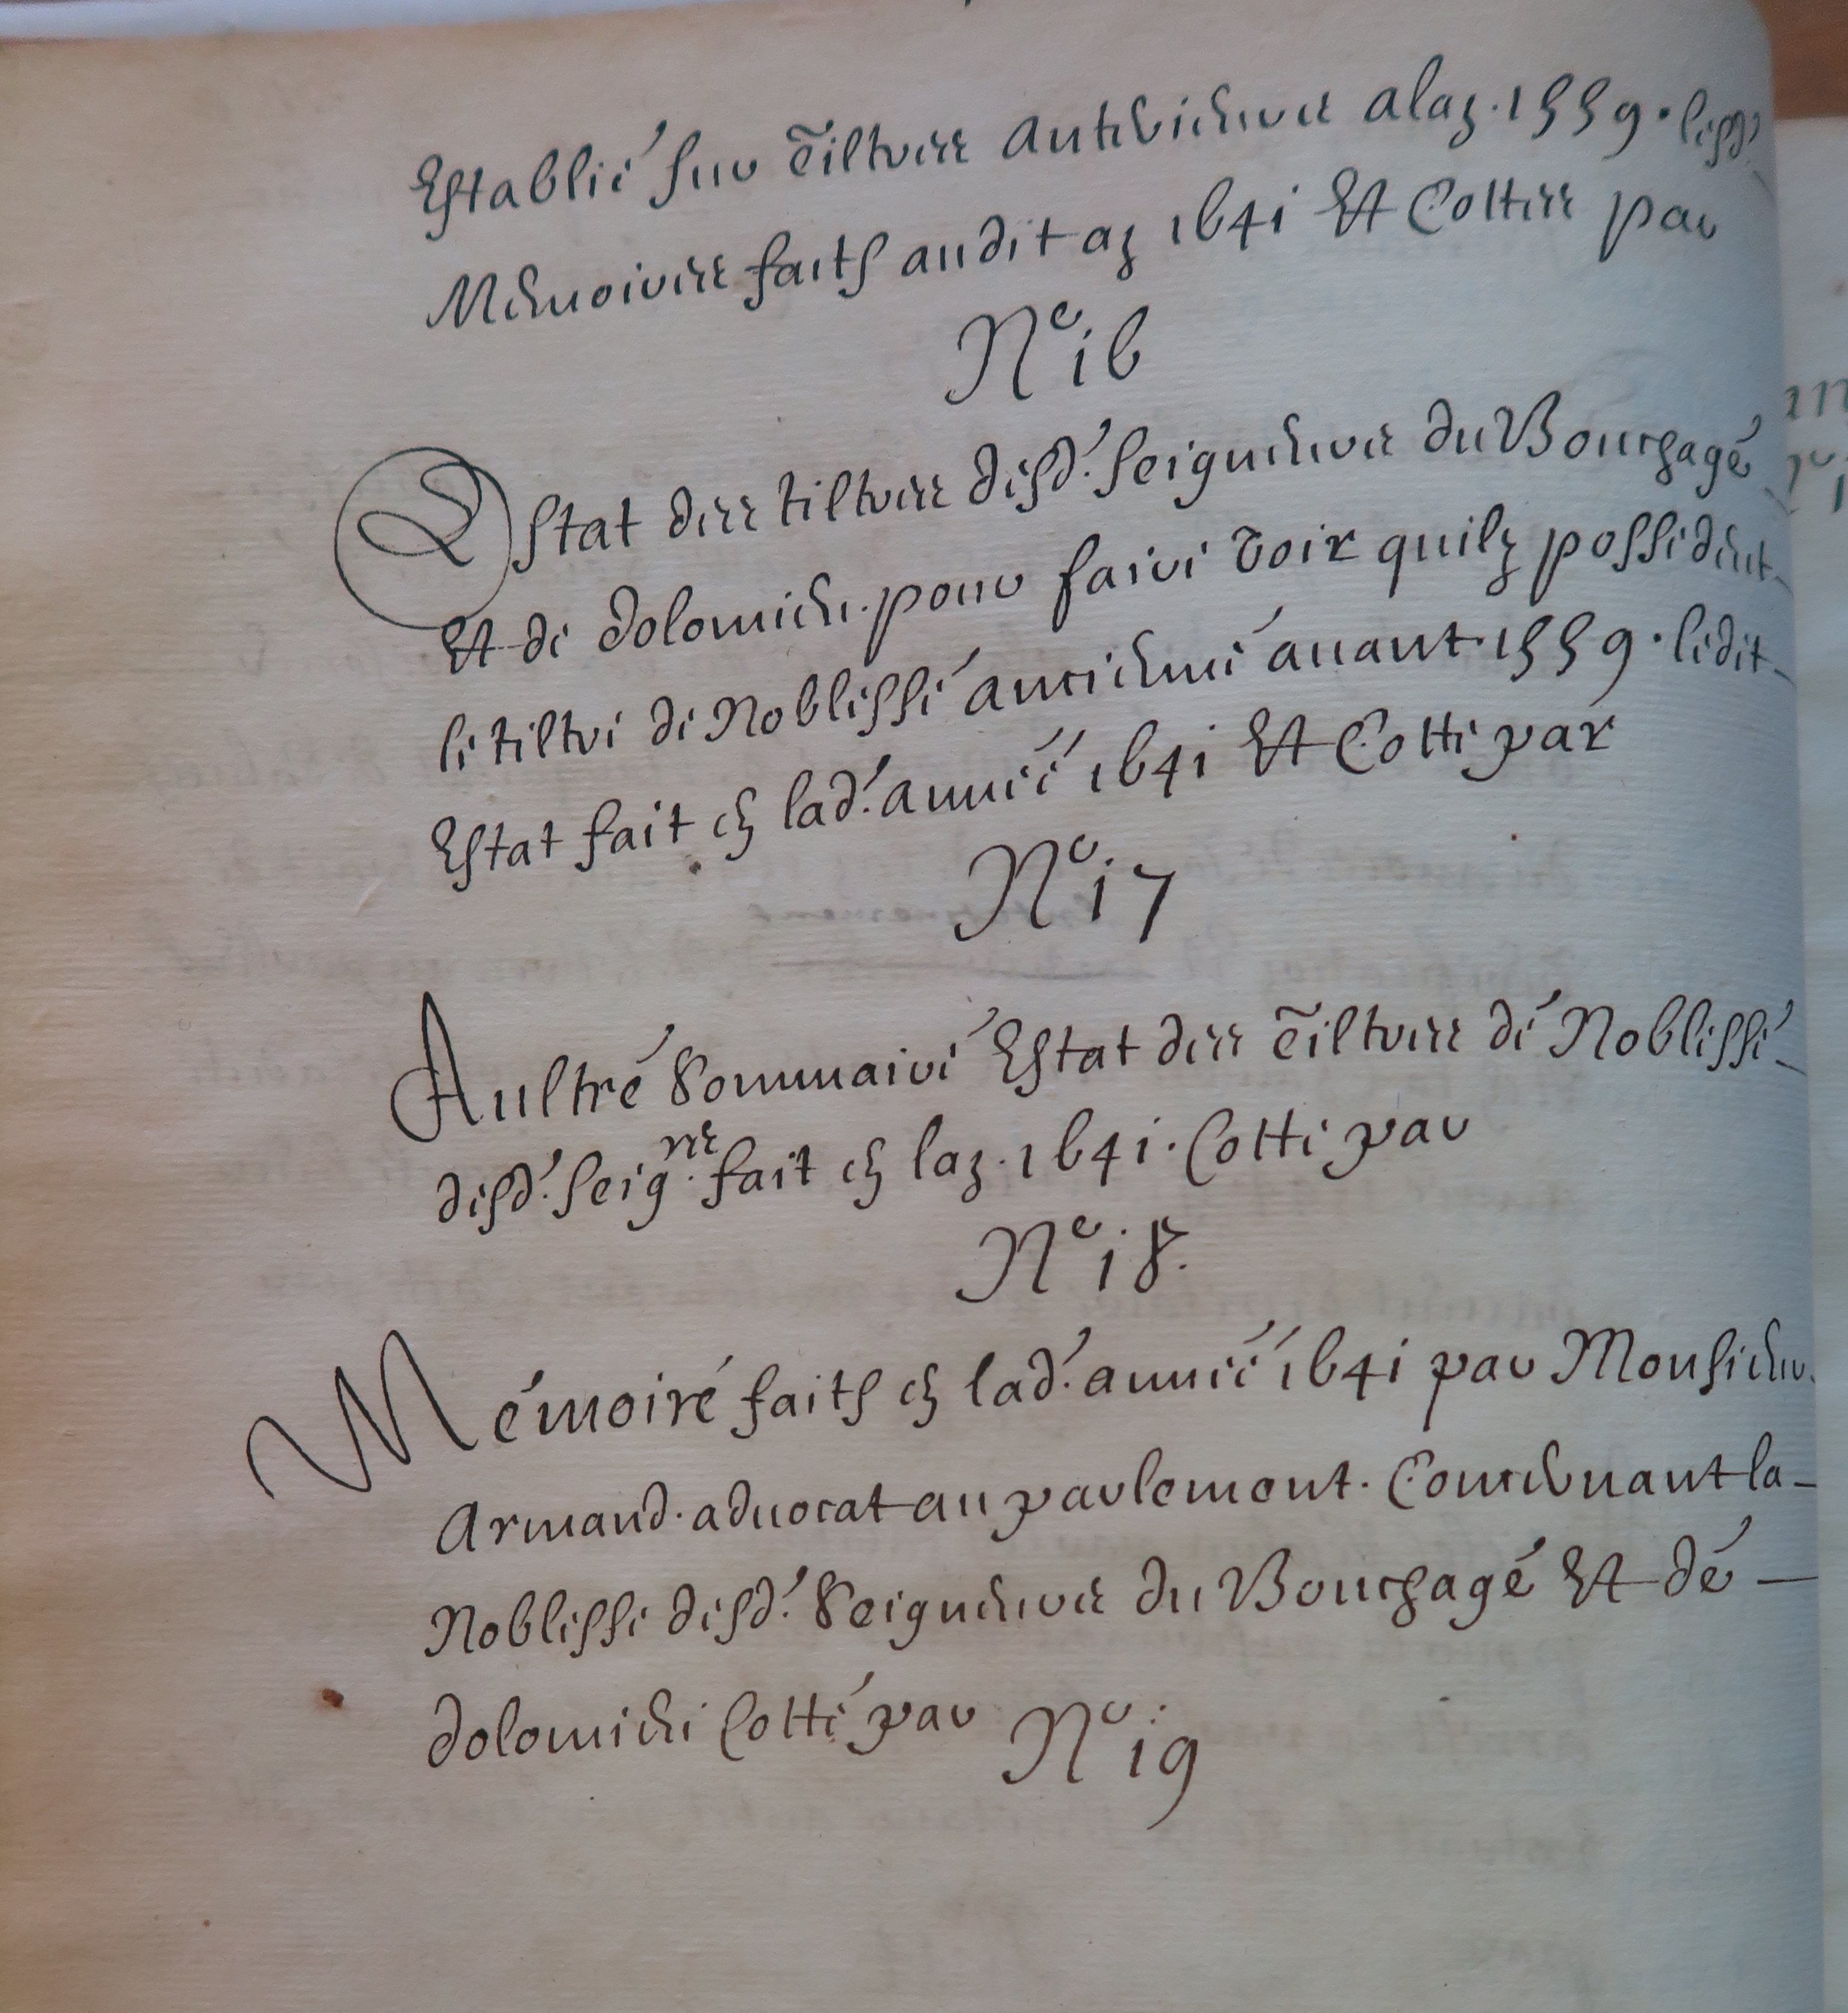 Establie sur Tiltres anterieures alaz. 1559. lesd
Memoires faits audit az 1641 Et Cottes par
N.e 16
Estat des tiltres desd. seigneurs du Bourgage
Et de dolomieu. pour faire voir quilz possedent
le tiltre de Noblesse ancienne auant. 1559. ledit
Estat fait en lad. année 1641 Et Cotte par
N.e 17
Aultre Sommaire Estat des Tiltres de Noblesse
desd. seig.res fait en laz. 1641. Cotte par
N.e 18.
Mémoire faits en lad. année 1641 par Monsieur
Armand. aduocat au parlement. Concernant la
Noblesse desd. Seigneurs du Bourgage Et dé
dolomieu Cotté par N.e 19